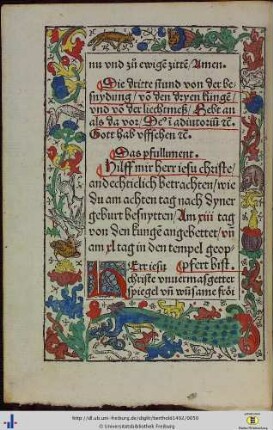 nu vnd zů ewigē zittē/ Amen.
Die dritte stund von der be-
snydung/ vō den dryen kunge/
vnd vō der liechtmeß/ Hebt an
als da vor/ De⁹ ī adiutoriū rē.
Gott hab vffsehen rē.
Das pfulment.
Hilff mir herr iesu christe/
andechticlich betrachten/ wie
du am achten tag nach dyner
geburt besnytten/ Am xiii tag
von den kunge angebettet/ vñ
am xl tag in den tempel geop-
pfert bist.
Herr iesu
christe vnuermasgetter
spiegel vñ wūsame fröi
http://dl.ub.uni-freiburg.de/diglit/berthold1492/0050
© Universitätsbibliothek Freiburg